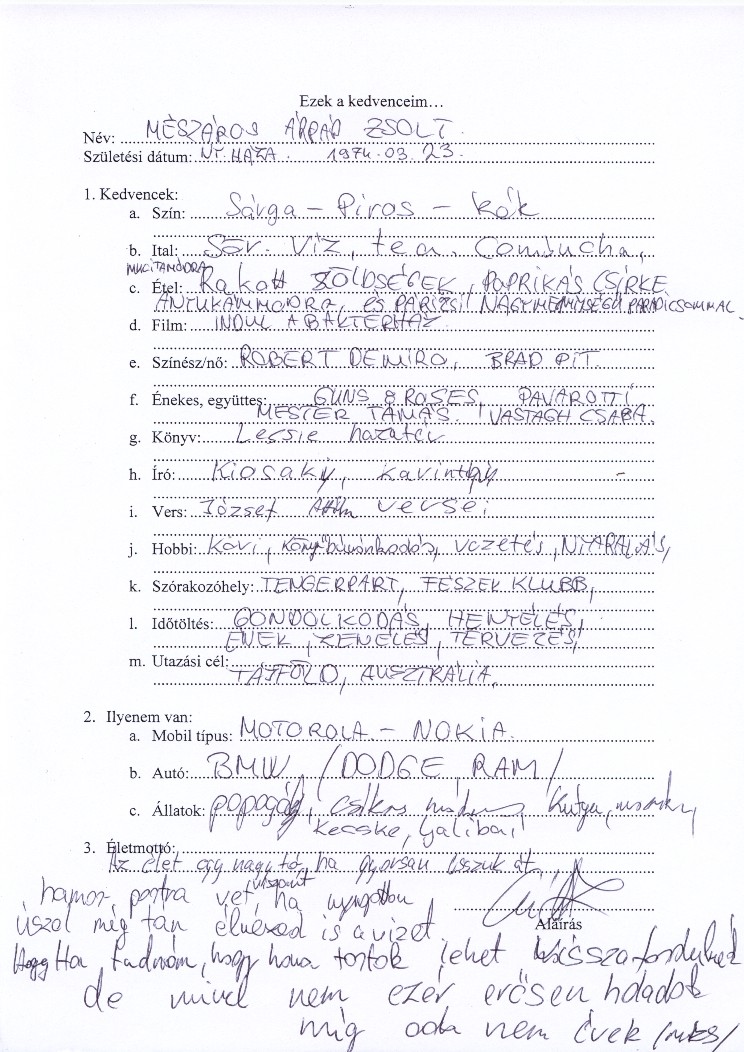 Ezek a kedvenceim…
Név: MÉSZÁROS ÁRPÁD ZSOLT
Születési dátum: NY.HÁZA 1974.03.23.
1. Kedvencek:
a. Szín: Sárga – Piros – Kék
b. Ital: Sör. Víz, tea. Combucha,
MUCITAMÓDRA
c. Étel: Rakott ZÖLDSÉGEK, PAPRIKÁS CSIRKE
ANYUKÁMMÓDRA, és PÁRIZSI NAGYMENNYISÉGŰ PARADICSOMMAL
d. Film: INDUL A BAKTERHÁZ
e. Színész/nő: ROBERT DENIRO, BRAD PIT.
f. Énekes, együttes: GUNS & ROSES, PAVAROTTI
MESTER TAMÁS. VASTAGH CSABA.
g. Könyv: Lessie hazatér
h. Író: Kiosaky, Karinthy
i. Vers: József Attila versei
j. Hobbi: Kávi, vezetés, NYARALÁS,
k. Szórakozóhely: TENGERPART, FÉSZEK KLUBB,
l. Időtöltés: GONDOLKODÁS, HENYÉLÉS,
ÉNEK, ZENÉLÉS, TERVEZÉS,
m. Utazási cél:
TÁJFÖLD, AUSZTRÁLIA,
2. Ilyenem van:
a. Mobil típus: MOTOROLA – NOKIA.
b. Autó: BMW, /DODGE RAM/
c. Állatok: papagáj, csikos Kutya,
kecske,
3. Életmottó:
Az élet egy nagy tó, ha gyorsan úszuk át,
hamar partra vet, viszont ha nyugottan
úszol még tán élvezed is a vizet.
Aláírás
Ha tudnám, hogy hova tartok lehet visszafordulnék
de mivel nem ezér erősen haladok
míg oda nem érek /mzs/